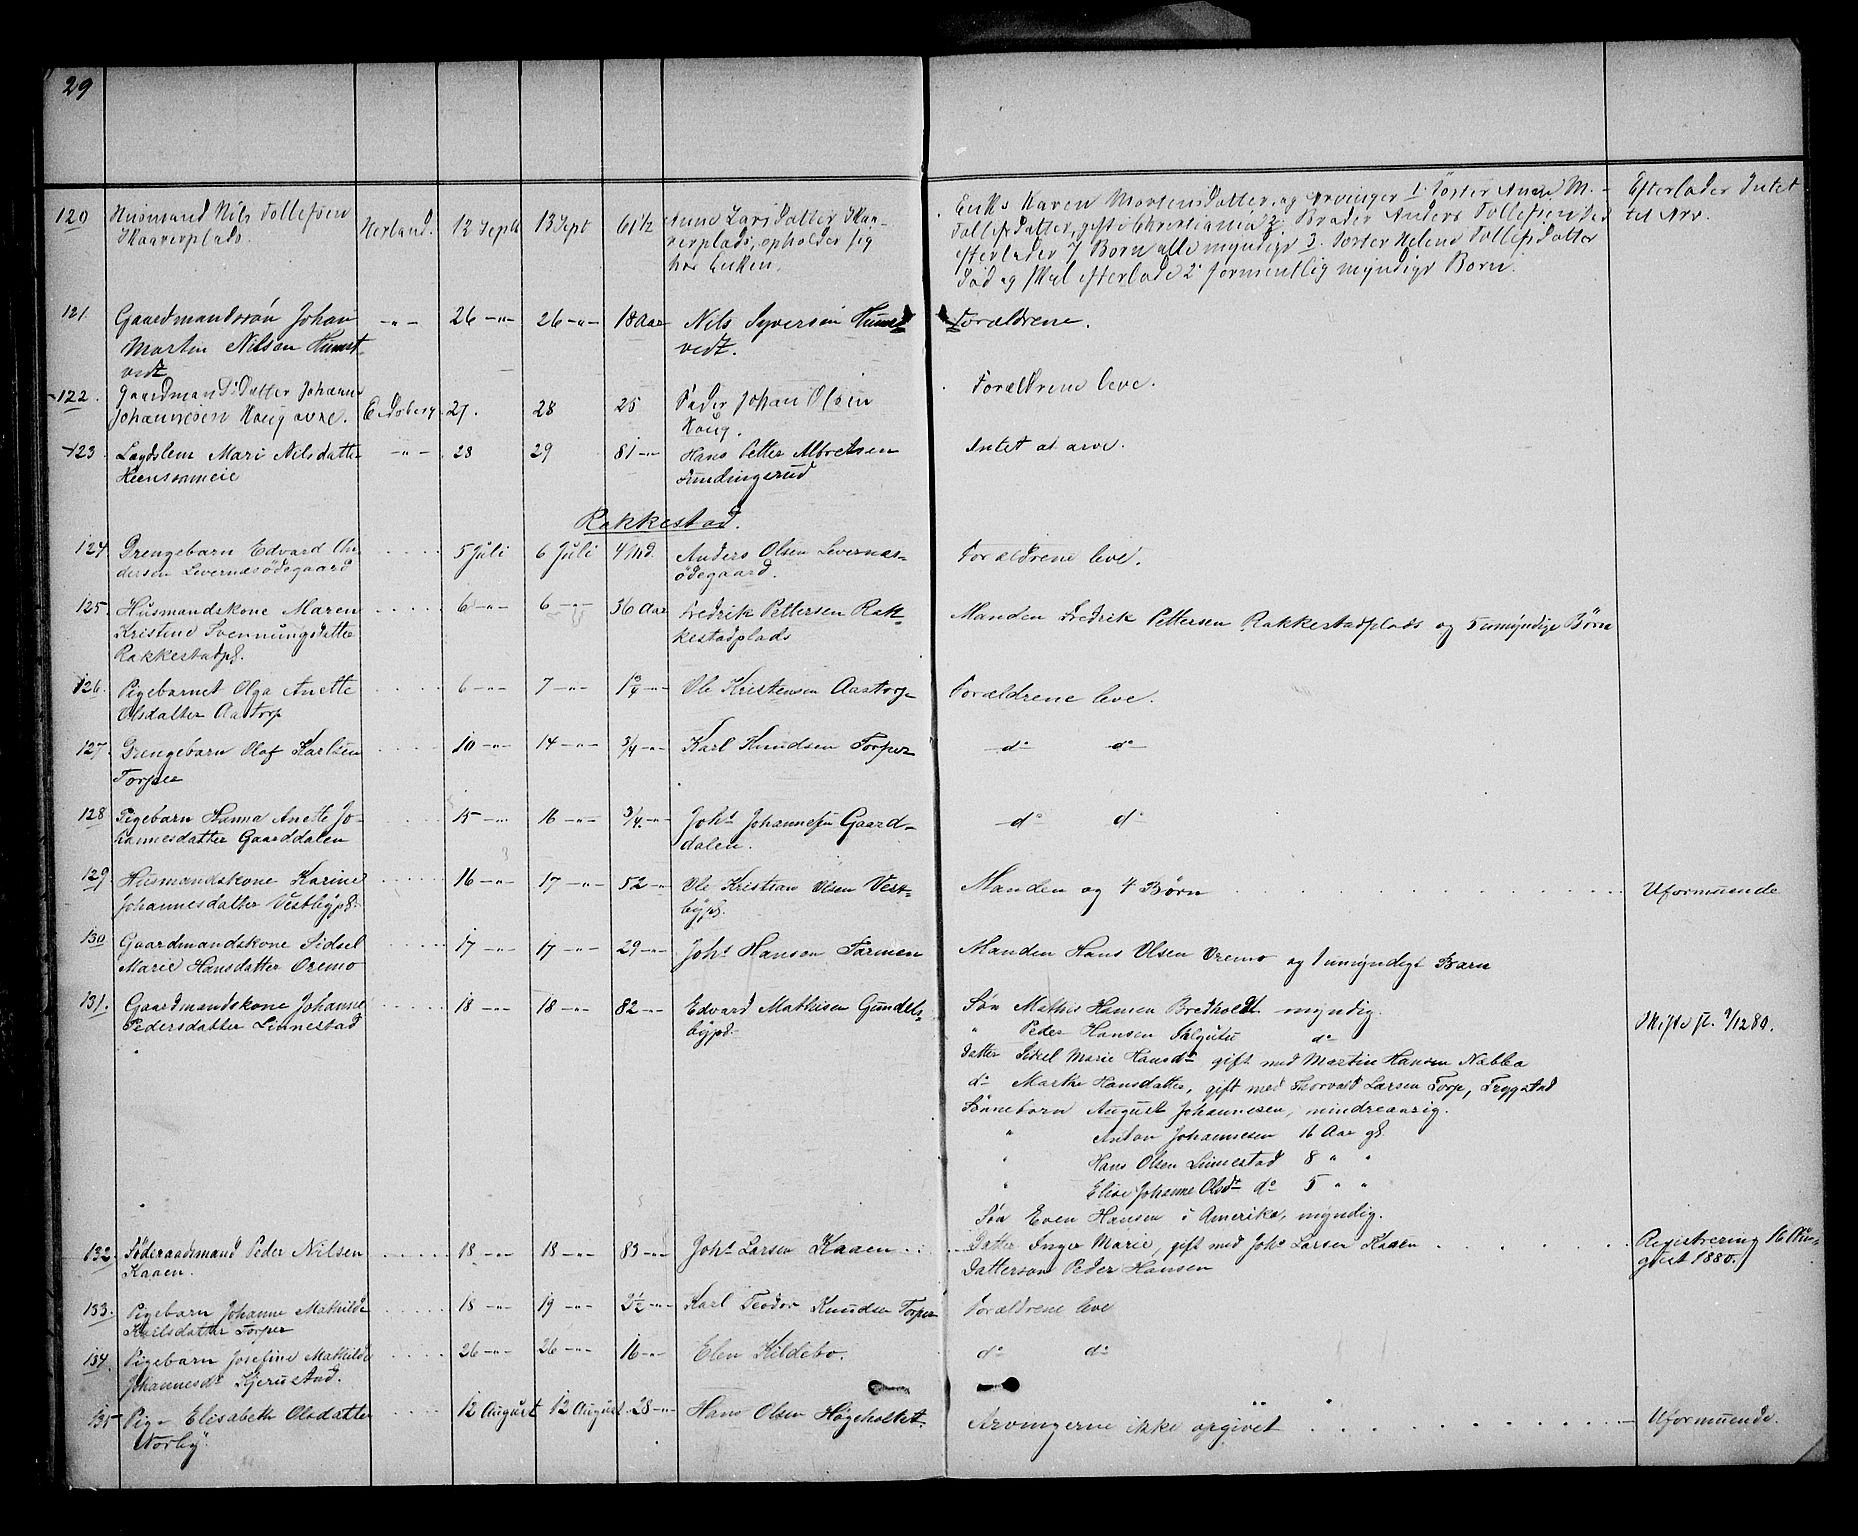 29
120 Husmand Nils Tollefsen Herland. 12 Septb 13 Sept 61 1/2 Anne Larsdatter Skaa- Enke Karen Mortensdatter, og Arvinger 1. Søster Anne M.- Efterlader Intet
Skaarerplads. rerplads, opholder sig Tollefsdatter, gift i Christiania 2. Broder Anders Tollefsen til Arv.
hos Enken. efterlader 7 Børn alle myndige 3. Søster Helene Tollefsdatter
død og skal efterlade 2 formentlig myndige Børn.
121. Gaardmandssøn Johan -"- 26 -"- 26 -"- 18 Aar Nils Syversen Humst Forældrene.
Martin Nilsen Humst vedt.
vedt
122. Gaardmandsdatter Johanne Eidsberg 27. 28 25 Fader Johan Olsen Forældrene leve.
Johannesen Haug øvre. Haug.
123 Lægdslem Mari Nilsdatter -"- 28 29 81 -"- Hans Petter Albretsen Intet at arve.
Heensameie Fundingsrud
Rakkestad.
124 Drengebarn Edvard An- 5 Juli 6 Juli 4 Md. Anders Olsen Levernæs- Forældrene leve.
dersen Levernæsødegaard ødegaard.
125. Husmandskone Maren 6 -"- 6 -"- 36 Aar Fredrik Pettersen Rak- Manden Fredrik Pettersen Rakkestadplads og 5 umyndige Børn
Kristine Svenningsdatter kestadplads
Rakkestadpl.
126. Pigebarnet Olga Anette 6 -"- 7 -"- 1 3/4 -"- Ole Kristensen Aastorp Forældrene leve.
Olsdatter Aastorp
127. Drengebarn Olaf Karlsen 10 -"- 14 -"- 3/4 -"- Karl Knudsen Torper do do
Torper
128 Pigebarn Hanna Anette Jo- 15 -"- 16 -"- 3/4 -"- Johs Johannesen Gaard- do do
hannesdatter Gaarddalen dalen.
129 Husmandskone Karine 16 -"- 17 -"- 52 -" Ole Kristian Olsen Vest- Manden og 4 Børn Uformuende
Johannesdatter Vestbypl. bypl.
130 Gaardmandskone Sidsel 17 -"- 17 -"- 29 -"- Johs Hansen Tormen Manden Hans Olsen Oremo og 1 umyndigt Barn
Marie Hansdatter Oremo
131. Gaardmandskone Johanne 18 -"- 18 -"- 82 -"- Edvard Mathisen Gundels- Søn Mathis Hansen Bredholdt myndig.
Pedersdatter Linnestad bypl. " Peder Hansen do Skifte sl. 9/12 80.
Datter Sidsel Marie Hansdr gift med Martin Hansen Nabba
do Marthe Hansdatter, gift med Thorvald Larsen Torp, Trygstad
Sønnebørn August Johannesen, mindreaarig.
" Anton Johannesen 16 Aar gl.
" Hans Olsen Linnestad 8 " "
" Elise Johanne Olsdr do 5 " "
Søn Even Hansen i Amerika, myndig.
132. Føderaadsmand Peder Nilsen 18 -"- 18 -"- 83 Johs Larsen Kaaen Datter Inger Marie, gift med Johs Larsen Kaaen Registrering 16 Au-
Kaaen. Dattersøn Peder Hansen gust 1880.
133. Pigebarn Johanne Mathilde 18 -"- 19 -"- 2 1/2 -"- Karl Teodor Knudsen Torper Forældrene leve
Karlsdatter Torper
134. Pigebarn Josefine Mathilde 26 -"- 26 -"- 16 -"- Elen Kildebo. do do
Johannesdr Kjerustad.
135 Pige Elisabeth Olsdatter 12 August 12 August 28 -"- Hans Olsen Høgeholtet Arvingerne ikke opgivet Uformuende.
Nørby.